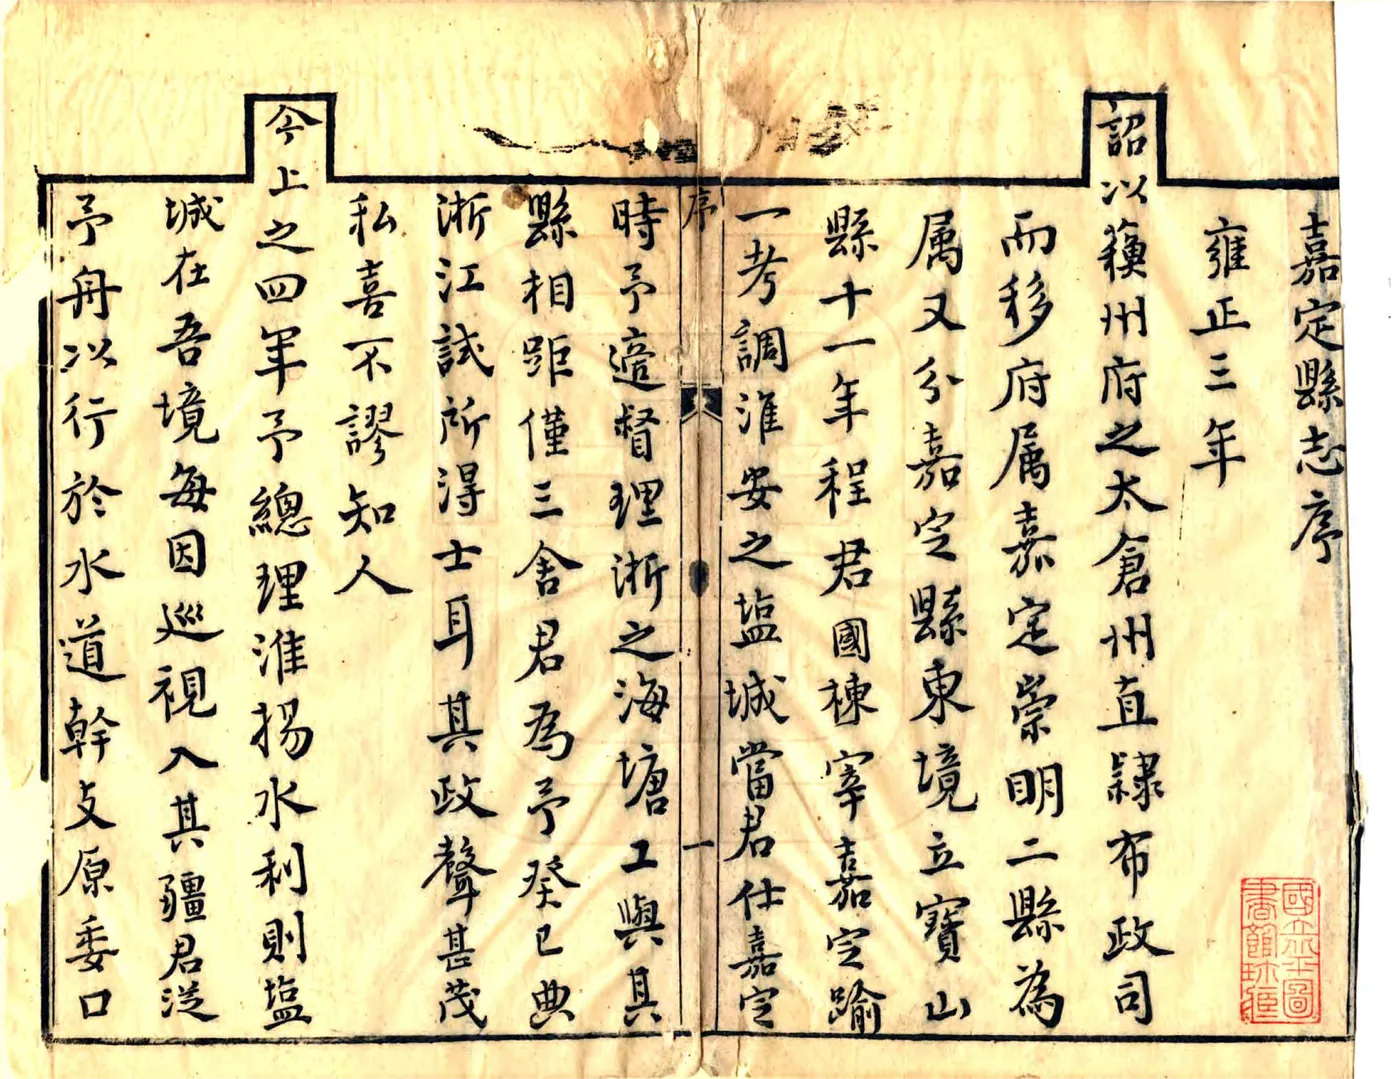 嘉定縣志序
雍正三年
詔以蘓州府之太倉州直隷布政司
而移府属嘉定崇明二縣為
属又分嘉定縣東境立寶山
縣十一年程君國棟宰嘉定踰
一考調淮安之塩城當君仕嘉定
序
一
時予適督理浙之海塘工與其
縣相距僅三舍君為予癸巳典
浙江試所得士耳其政聲甚茂
私喜不謬知人
今上之四年予總理淮揚水利則塩
城在吾境每因巡視入其疆君送
予舟以行於水道幹支原委口
國立北平圖
書館珍藏